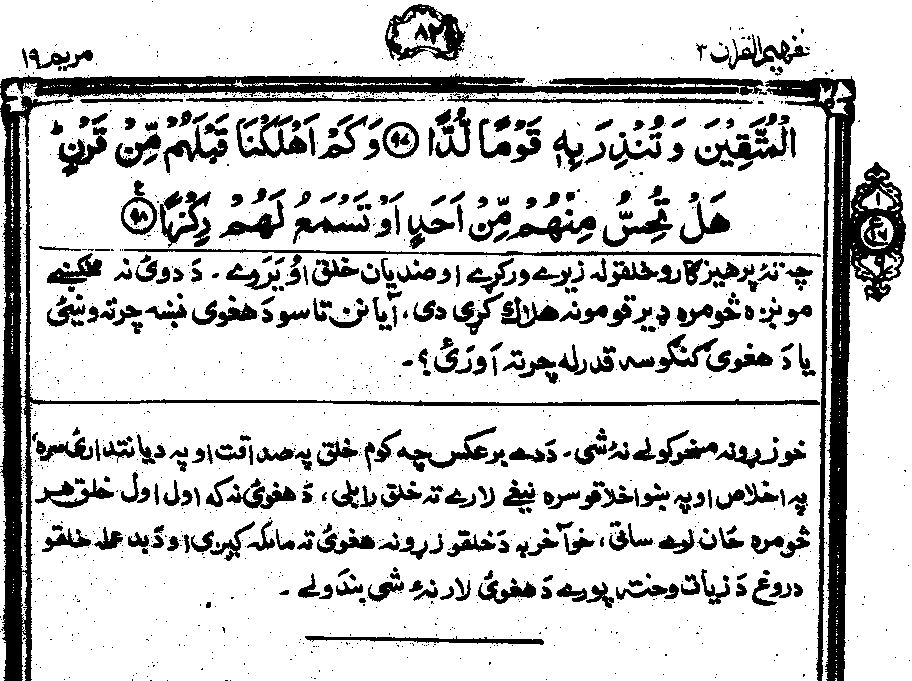 تفهیم القرآن ۳
۸۲
مریم ۱۹
الْمُتَّقِيْنَ وَ تُنْذِرَ بِهٖ قَوْمًا لُّدًّا ﴿۹۷﴾ وَكَمْ اَهْلَكْنَا قَبْلَهُمْ مِّنْ قَرْنٍ ؕ
هَلْ تُحِسُّ مِنْهُمْ مِّنْ اَحَدٍ اَوْ تَسْمَعُ لَهُمْ رِكْزًا ﴿۹۸﴾ ع
چه تهٔ پرهیزګارو خلقو له زیرے ورکړے او ضدیان خلق اوُیَرَوے ۔ دَ دویٔ نه
مونږه څومره ډیر قومونه هلاك کړی دی، آیا نن تاسو دَ هغوی نښه چرته وینیٔ
یا دَ هغوی کنګوسه قدرله چرته اَورَیٔ؟ ۔
خو زړونه مسخرکولے نهٔ شی ۔ دَدے برعکس چه کوم خلق په صداقت او په دیانتداریٔ سره،
په اخلاص او په ښو اخلاقو سره نیغے لارے ته خلق رابلی، دَ هغویٔ نه که اول اول خلق هر
څومره ځان لرے ساتی، خو آخر به دَ خلقو زړونه هغویٔ ته مائله کیږی او دَ بد عمله خلقو
دروغ دَ زیات وخت پورے دَ هغویٔ لار نهٔ شی بندولے ۔